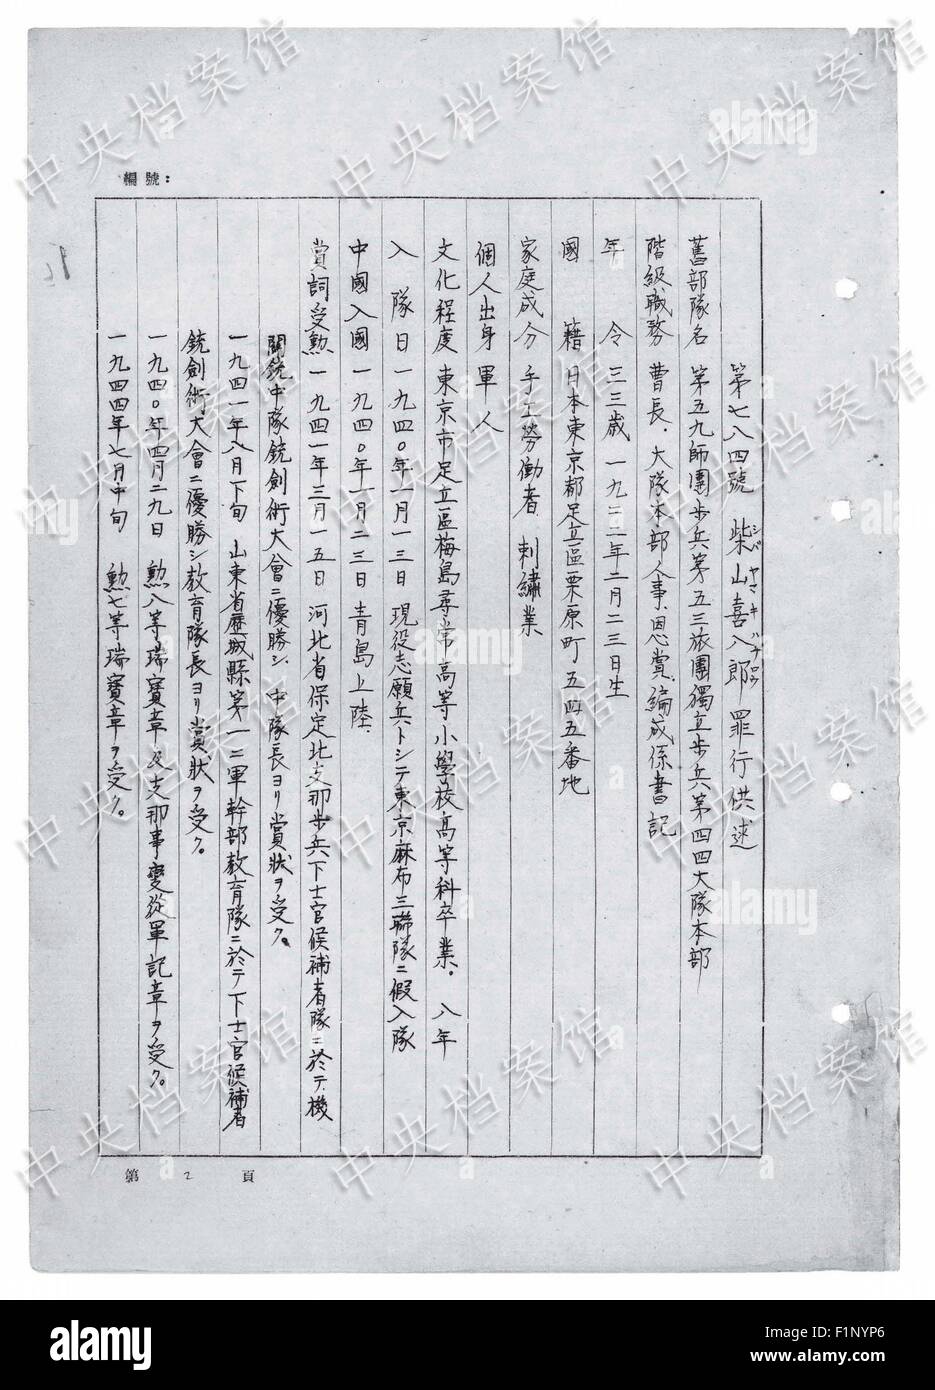 編號：
第七八四號 柴山喜八郎 罪行供述
シバ ヤマ キ ハチロウ
舊部隊名 第五九師團步兵第五三旅團獨立步兵第四四大隊本部
階級職務 曹長．大隊本部人事．恩賞．編成係書記
年 令 三三歳 一九二二年二月二三日生
國 籍 日本東京都足立區栗原町五四五番地
家庭成分 手工勞働者．刺繡業
個人出身 軍人
文化程度 東京市足立區梅島尋常高等小學校高等科卒業。 八年
入 隊 日 一九四〇年一月一三日 現役志願兵トシテ東京麻布三聯隊ニ假入隊
中國入國 一九四〇年一月二三日 青島上陸．
賞詞受勲 一九四一年三月一五日 河北省保定北支那步兵下士官候補者隊ニ於テ．機
關銃中隊銃劍術大會ニ優勝シ．中隊長ヨリ賞狀ヲ受ク。
一九四一年八月下旬 山東省歷城縣第一二軍幹部教育隊ニ於テ下士官候補者
銃劍術大會ニ優勝シ教育隊長ヨリ賞狀ヲ受ク。
一九四〇年四月二九日 勲八等瑞寶章及支那事變從軍記章ヲ受ク。
一九四四年七月中旬 勲七等瑞寶章ヲ受ク。
第 2 頁
中央档案馆
alamy
alamy
Image ID: F1NYP6
www.alamy.com